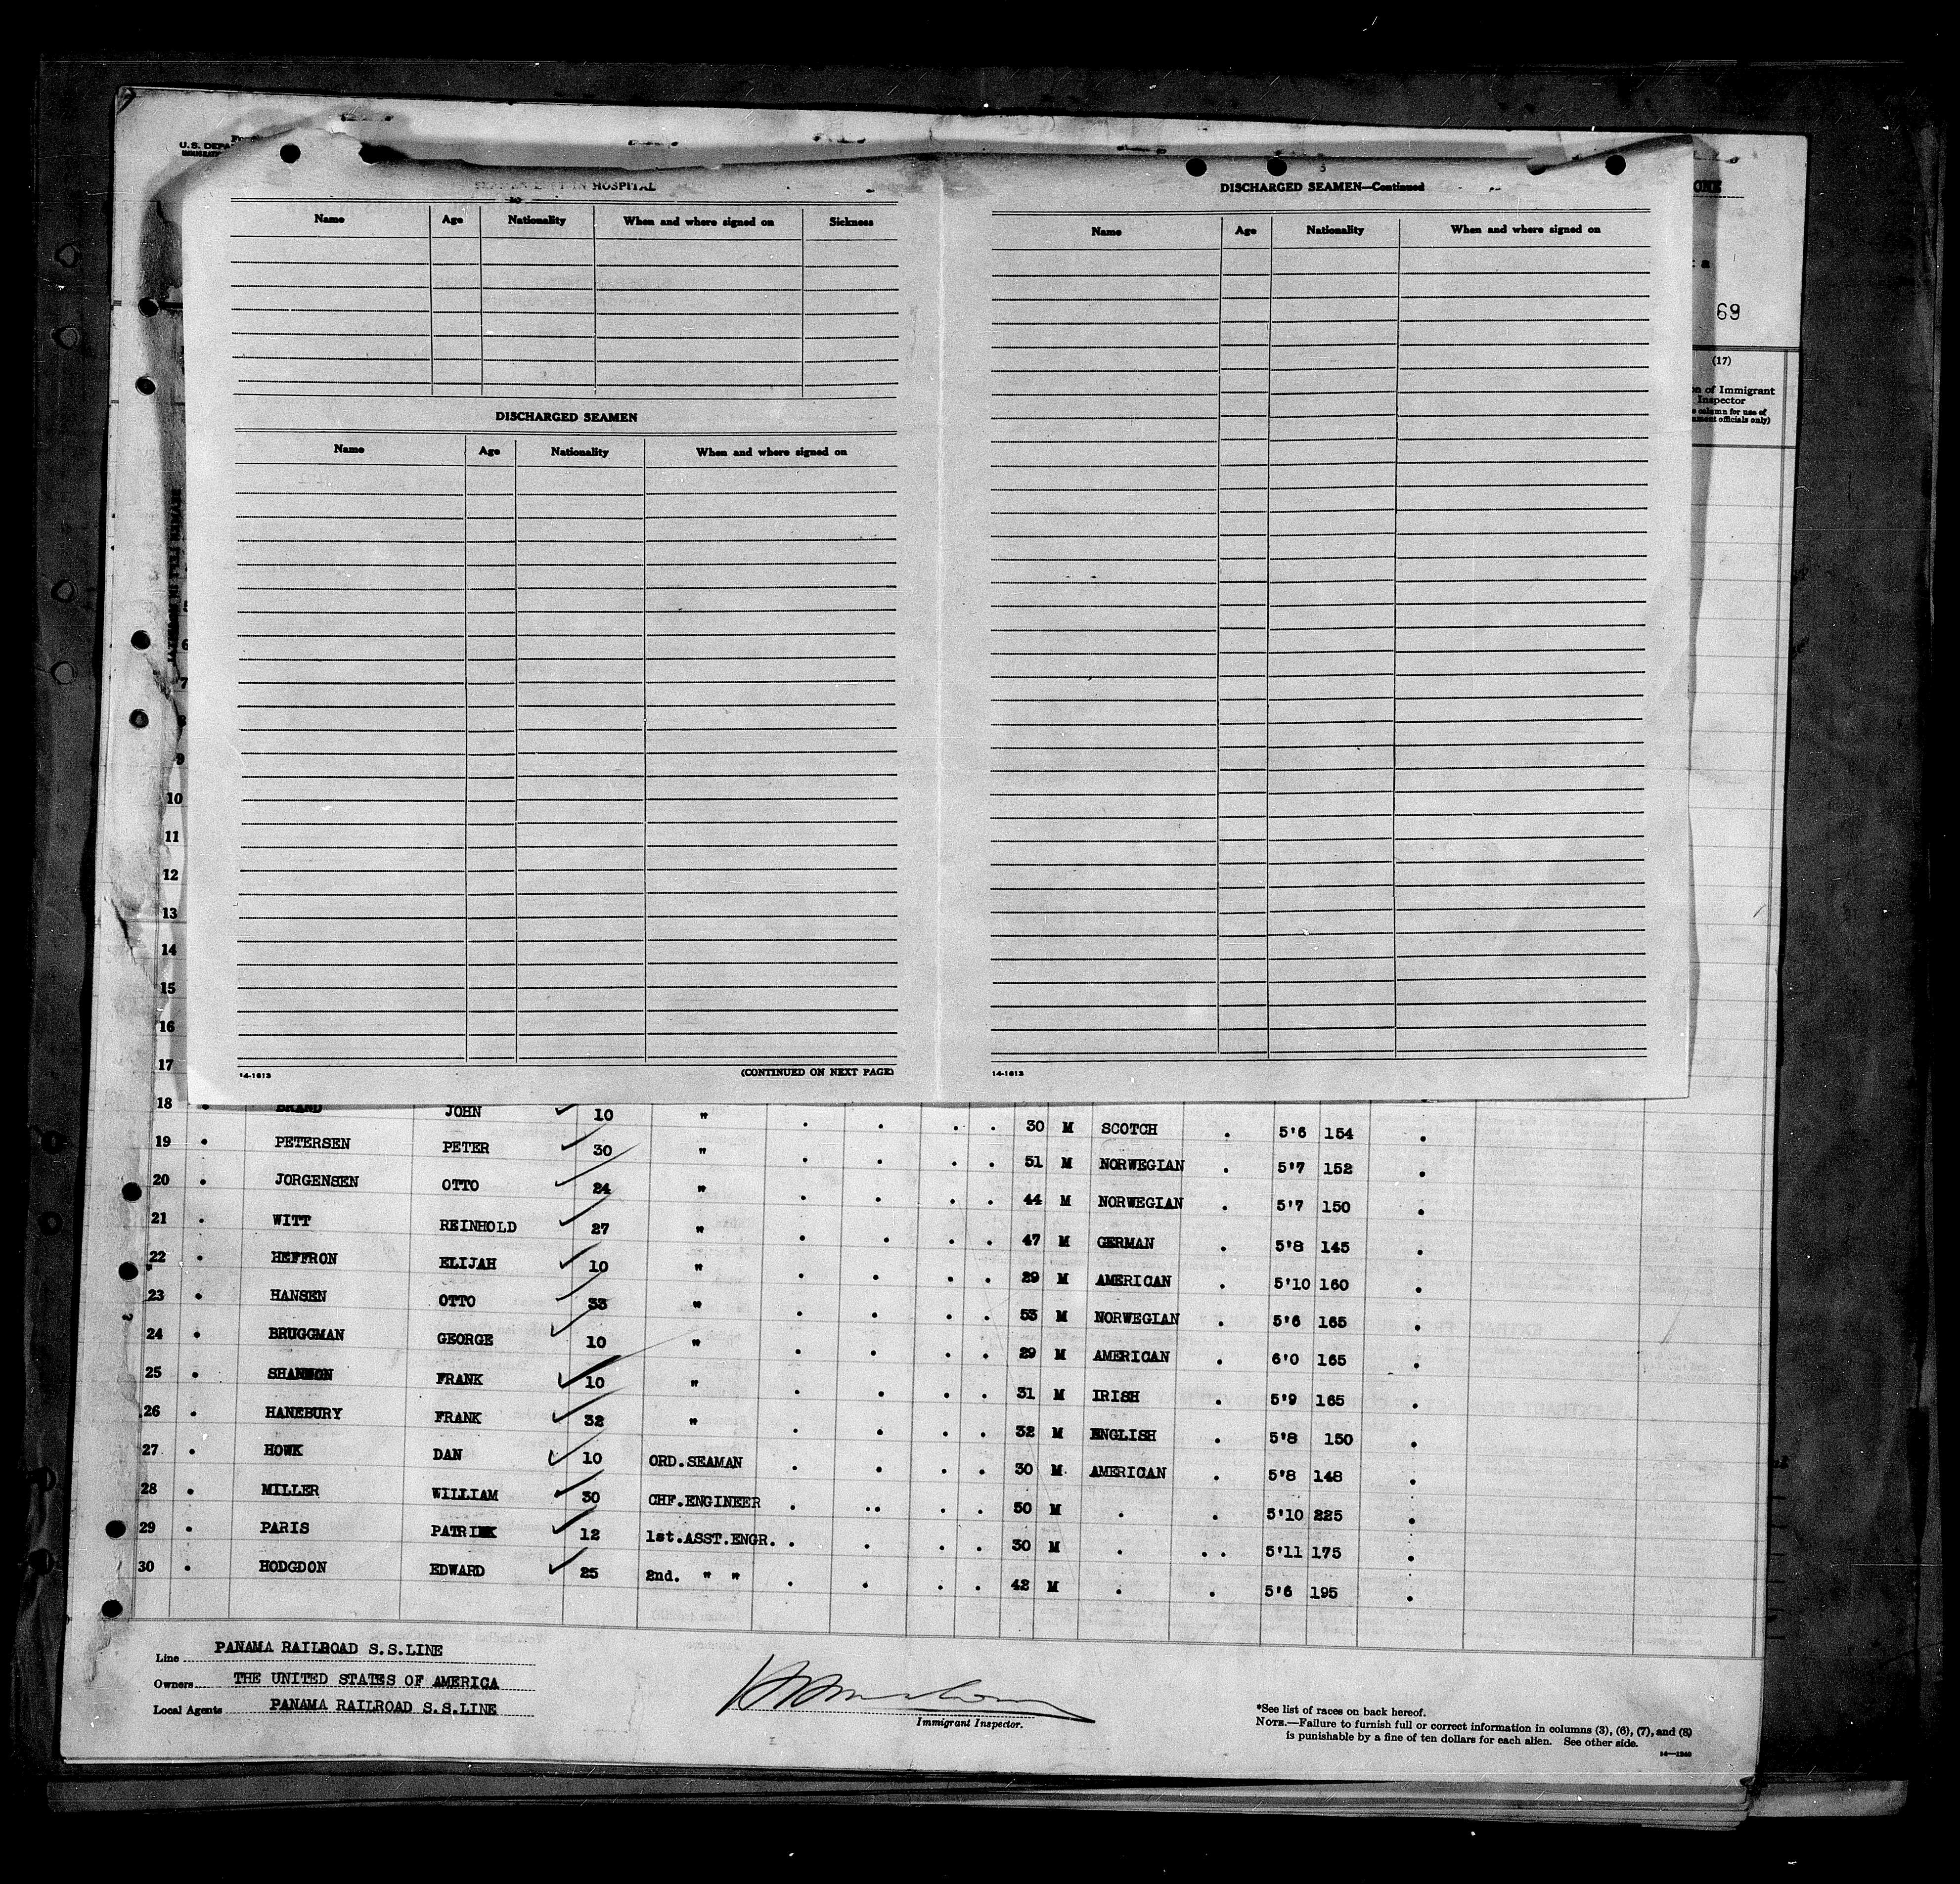 U.S. DEPA
SEAMEN LEFT IN HOSPITAL
Name Age Nationality When and where signed on Sickness
DISCHARGED SEAMEN
Name Age Nationality When and where signed on
14-1613 (CONTINUED ON NEXT PAGE)
3
DISCHARGED SEAMEN—Continued
Name Age Nationality When and where signed on
14-1613
ONE
t a
69
(17)
on of Immigrant
Inspector
column for use of
ment officials only)
6
7
8
9
10
11
12
13
14
15
16
17
18 BRAND JOHN 10 " 30 M SCOTCH 5'6 154
19 PETERSEN PETER 30 " 51 M NORWEGIAN 5'7 152
20 JORGENSEN OTTO 24 " 44 M NORWEGIAN 5'7 150
21 WITT REINHOLD 27 " 47 M GERMAN 5'8 145
22 HEFFRON ELIJAH 10 " 29 M AMERICAN 5'10 160
23 HANSEN OTTO 33 " 53 M NORWEGIAN 5'6 165
24 BRUGGMAN GEORGE 10 " 29 M AMERICAN 6'0 165
25 SHANNON FRANK 10 " 31 M IRISH 5'9 165
26 HANEBURY FRANK 32 " 32 M ENGLISH 5'8 150
27 HOWK DAN 10 ORD.SEAMAN 30 M. AMERICAN 5'8 148
28 MILLER WILLIAM 30 CHF.ENGINEER 50 M 5'10 225
29 PARIS PATRICK 12 1st.ASST.ENGR. 30 M 5'11 175
30 HODGDON EDWARD 25 2nd. " " 42 M 5'6 195
Line PANAMA RAILROAD S.S.LINE
Owners THE UNITED STATES OF AMERICA
Local Agents PANAMA RAILROAD S.S.LINE
Immigrant Inspector.
*See list of races on back hereof.
NOTE.—Failure to furnish full or correct information in columns (3), (6), (7), and (8)
is punishable by a fine of ten dollars for each alien. See other side.
14—1240